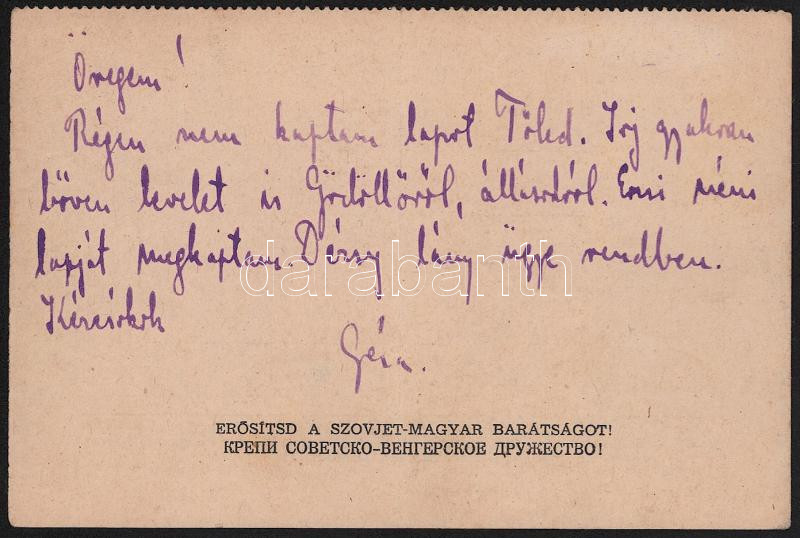 Öregem!
Régen nem kaptam lapot Tőled. Írj gyakran
bőven levelet is Gödöllőről, állásodról. Erzsi néni
lapját megkaptam. Dérsy lány ügye rendben.
Géza.
ERŐSÍTSD A SZOVJET-MAGYAR BARÁTSÁGOT!
КРЕПИ СОВЕТСКО-ВЕНГЕРСКОЕ ДРУЖЕСТВО!
darabanth